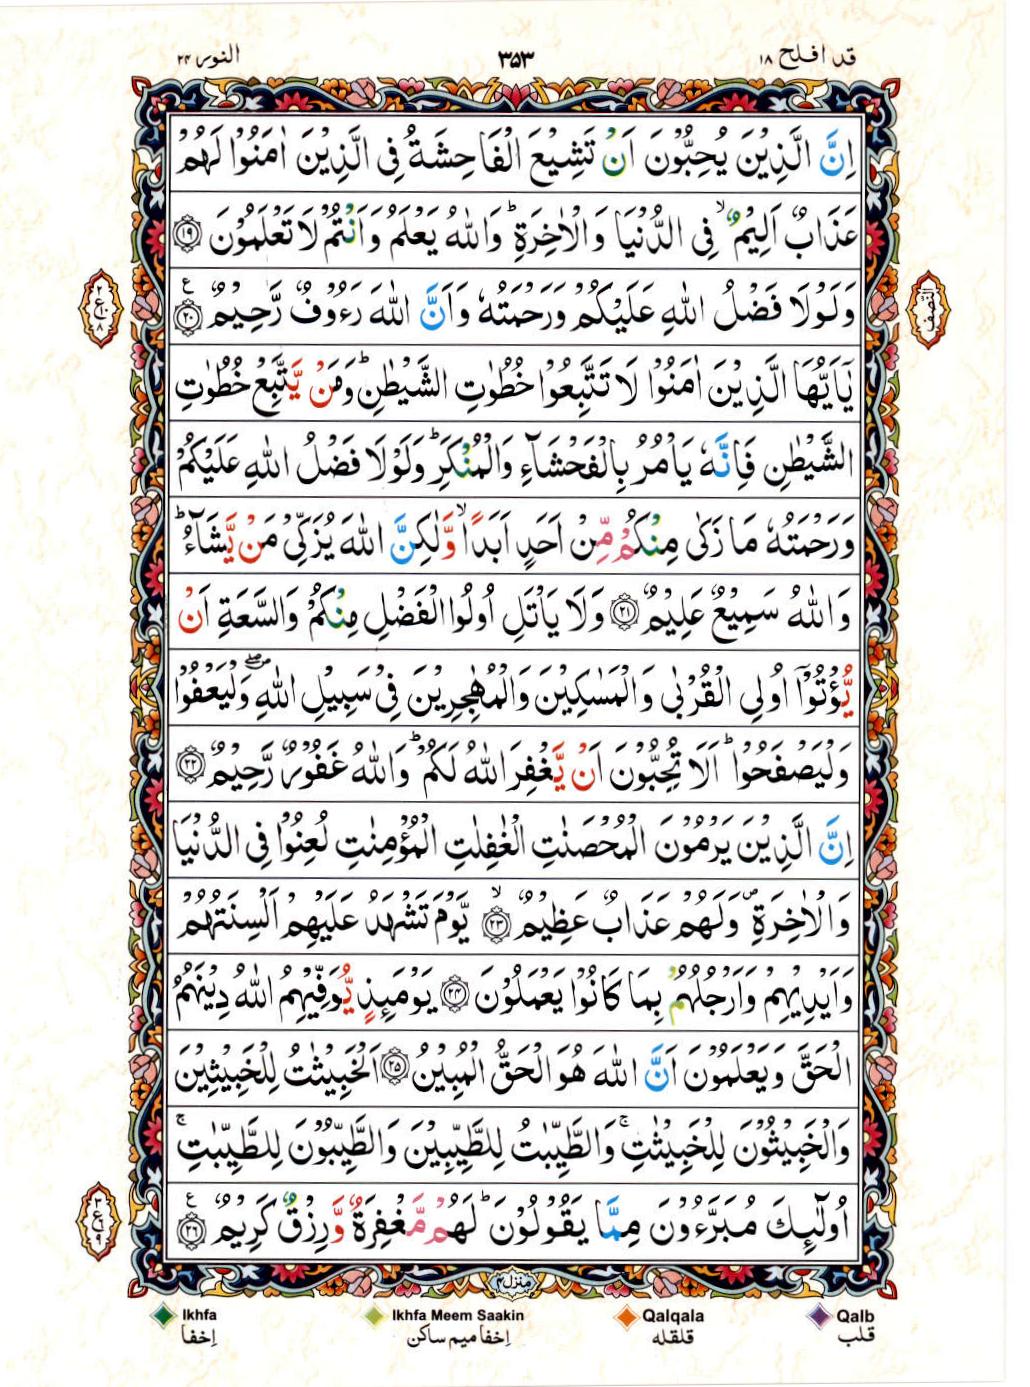 قد افلح ۱۸ ۳۵۳ النور ۲۴
اِنَّ الَّذِيْنَ يُحِبُّوْنَ اَنْ تَشِيْعَ الْفَاحِشَةُ فِى الَّذِيْنَ اٰمَنُوْا لَهُمْ
عَذَابٌ اَلِيْمٌ ۙ فِى الدُّنْيَا وَالْاٰخِرَةِ ؕ وَاللّٰهُ يَعْلَمُ وَاَنْتُمْ لَا تَعْلَمُوْنَ ﴿۱۹﴾
وَلَوْلَا فَضْلُ اللّٰهِ عَلَيْكُمْ وَرَحْمَتُهٗ وَاَنَّ اللّٰهَ رَءُوْفٌ رَّحِيْمٌ ﴿۲۰﴾ ع
النصف
۲ ع ۸
يٰۤاَيُّهَا الَّذِيْنَ اٰمَنُوْا لَا تَتَّبِعُوْا خُطُوٰتِ الشَّيْطٰنِ ؕ وَمَنْ يَّتَّبِعْ خُطُوٰتِ
الشَّيْطٰنِ فَاِنَّهٗ يَاْمُرُ بِالْفَحْشَآءِ وَالْمُنْكَرِ ؕ وَلَوْلَا فَضْلُ اللّٰهِ عَلَيْكُمْ
وَرَحْمَتُهٗ مَا زَكٰى مِنْكُمْ مِّنْ اَحَدٍ اَبَدًا ۙ وَّلٰكِنَّ اللّٰهَ يُزَكِّىْ مَنْ يَّشَآءُ ؕ
وَاللّٰهُ سَمِيْعٌ عَلِيْمٌ ﴿۲۱﴾ وَلَا يَاْتَلِ اُولُوا الْفَضْلِ مِنْكُمْ وَالسَّعَةِ اَنْ
يُّؤْتُوْۤا اُولِى الْقُرْبٰى وَالْمَسٰكِيْنَ وَالْمُهٰجِرِيْنَ فِىْ سَبِيْلِ اللّٰهِ ۖ وَلْيَعْفُوْا
وَلْيَصْفَحُوْا ؕ اَلَا تُحِبُّوْنَ اَنْ يَّغْفِرَ اللّٰهُ لَكُمْ ؕ وَاللّٰهُ غَفُوْرٌ رَّحِيْمٌ ﴿۲۲﴾
اِنَّ الَّذِيْنَ يَرْمُوْنَ الْمُحْصَنٰتِ الْغٰفِلٰتِ الْمُؤْمِنٰتِ لُعِنُوْا فِى الدُّنْيَا
وَالْاٰخِرَةِ ۪ وَلَهُمْ عَذَابٌ عَظِيْمٌ ۙ ﴿۲۳﴾ يَّوْمَ تَشْهَدُ عَلَيْهِمْ اَلْسِنَتُهُمْ
وَاَيْدِيْهِمْ وَاَرْجُلُهُمْ بِمَا كَانُوْا يَعْمَلُوْنَ ﴿۲۴﴾ يَوْمَىِٕذٍ يُّوَفِّيْهِمُ اللّٰهُ دِيْنَهُمُ
الْحَقَّ وَيَعْلَمُوْنَ اَنَّ اللّٰهَ هُوَ الْحَقُّ الْمُبِيْنُ ﴿۲۵﴾ اَلْخَبِيْثٰتُ لِلْخَبِيْثِيْنَ
وَالْخَبِيْثُوْنَ لِلْخَبِيْثٰتِ ۚ وَالطَّيِّبٰتُ لِلطَّيِّبِيْنَ وَالطَّيِّبُوْنَ لِلطَّيِّبٰتِ ۚ
اُولٰٓئِكَ مُبَرَّءُوْنَ مِمَّا يَقُوْلُوْنَ ؕ لَهُمْ مَّغْفِرَةٌ وَّرِزْقٌ كَرِيْمٌ ﴿۲۶﴾ ع
منزل ۴
Ikhfa Ikhfa Meem Saakin Qalqala Qalb
اِخفا اِخفا میم ساکن قلقله قلب